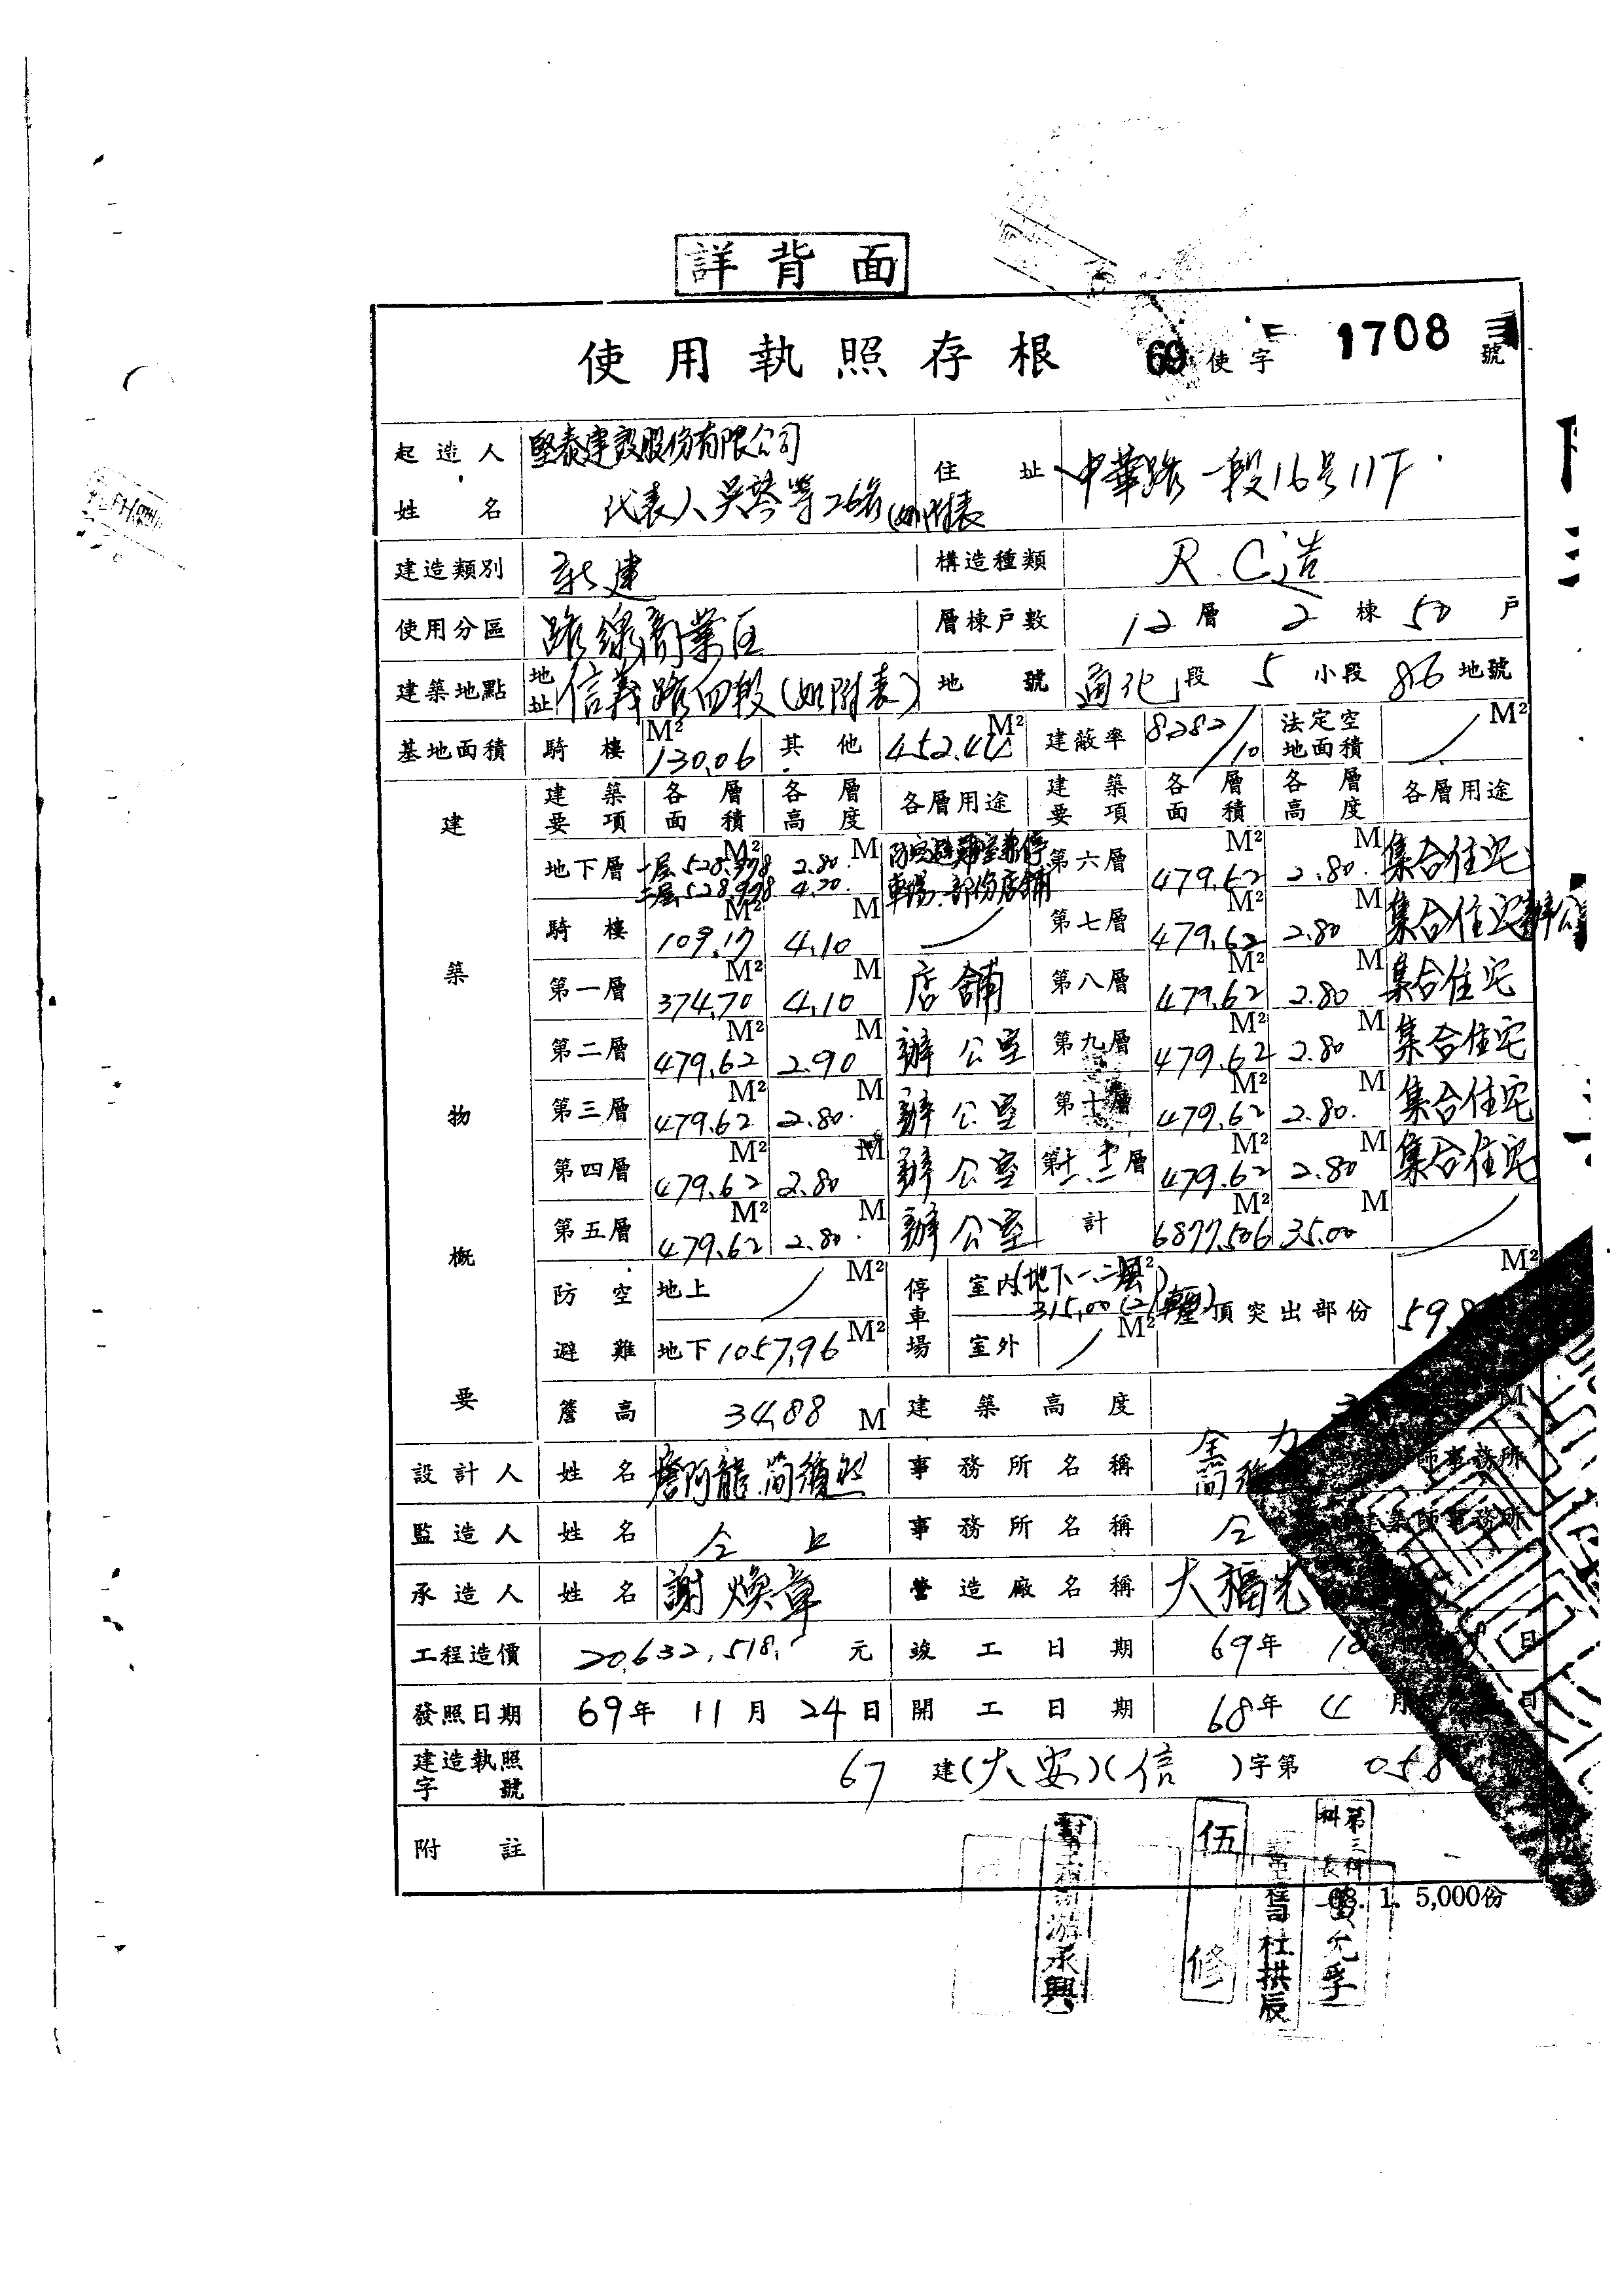 詳背面
使用執照存根 69 使字 1708 號
起造人姓名 堅泰建設股份有限公司 代表人吳 等26名(如附表 住址 中華路一段16号11F
建造類別 新建 構造種類 R.C造
使用分區 路線商業区 層棟戶數 12層 2棟 50戶
建築地點 地址 信義路四段(如附表) 地號 通化段 5小段 86地號
基地面積 騎樓 130.06 M² 其他 452.44 M² 建蔽率 8.282/10 法定空地面積 / M²
建築物概要
建築要項 各層面積 各層高度 各層用途 建築要項 各層面積 各層高度 各層用途
地下層 一層528.978 M² 2.80 M 防空避難室兼停 第六層 479.62 M² 2.80 M 集合住宅
二层528.978 4.20 車場.部份店舖
騎樓 109.17 M² 4.10 M / 第七層 479.62 M² 2.80 M 集合住宅辦公
第一層 374.70 M² 4.10 M 店舖 第八層 479.62 M² 2.80 M 集合住宅
第二層 479.62 M² 2.90 M 辦公室 第九層 479.62 M² 2.80 M 集合住宅
第三層 479.62 M² 2.80 M 辦公室 第十層 479.62 M² 2.80 M 集合住宅
第四層 479.62 M² 2.80 M 辦公室 第十一.十二層 479.62 M² 2.80 M 集合住宅
第五層 479.62 M² 2.80 M 辦公室 計 6877.506 M² 35.00 M /
防空避難 地上 / M² 停車場 室內(地下一.二層) 315.00 M² 屋頂突出部份 59.8 M²
地下 1057.96 M² 室外 / M²
簷高 34.88 M 建築高度 M
設計人 姓名 詹阿龍 簡 事務所名稱 師事務所
監造人 姓名 仝上 事務所名稱 仝 建築師事務所
承造人 姓名 謝煥章 營造廠名稱 大福
工程造價 20,632,518 元 竣工日期 69年 10 日
發照日期 69年 11月 24日 開工日期 68年 4月 日
建造執照字號 67 建(大安)(信 )字第 058
附註
1. 5,000份
游承興
伍 修
杜拱辰
第三科 科長 允孚